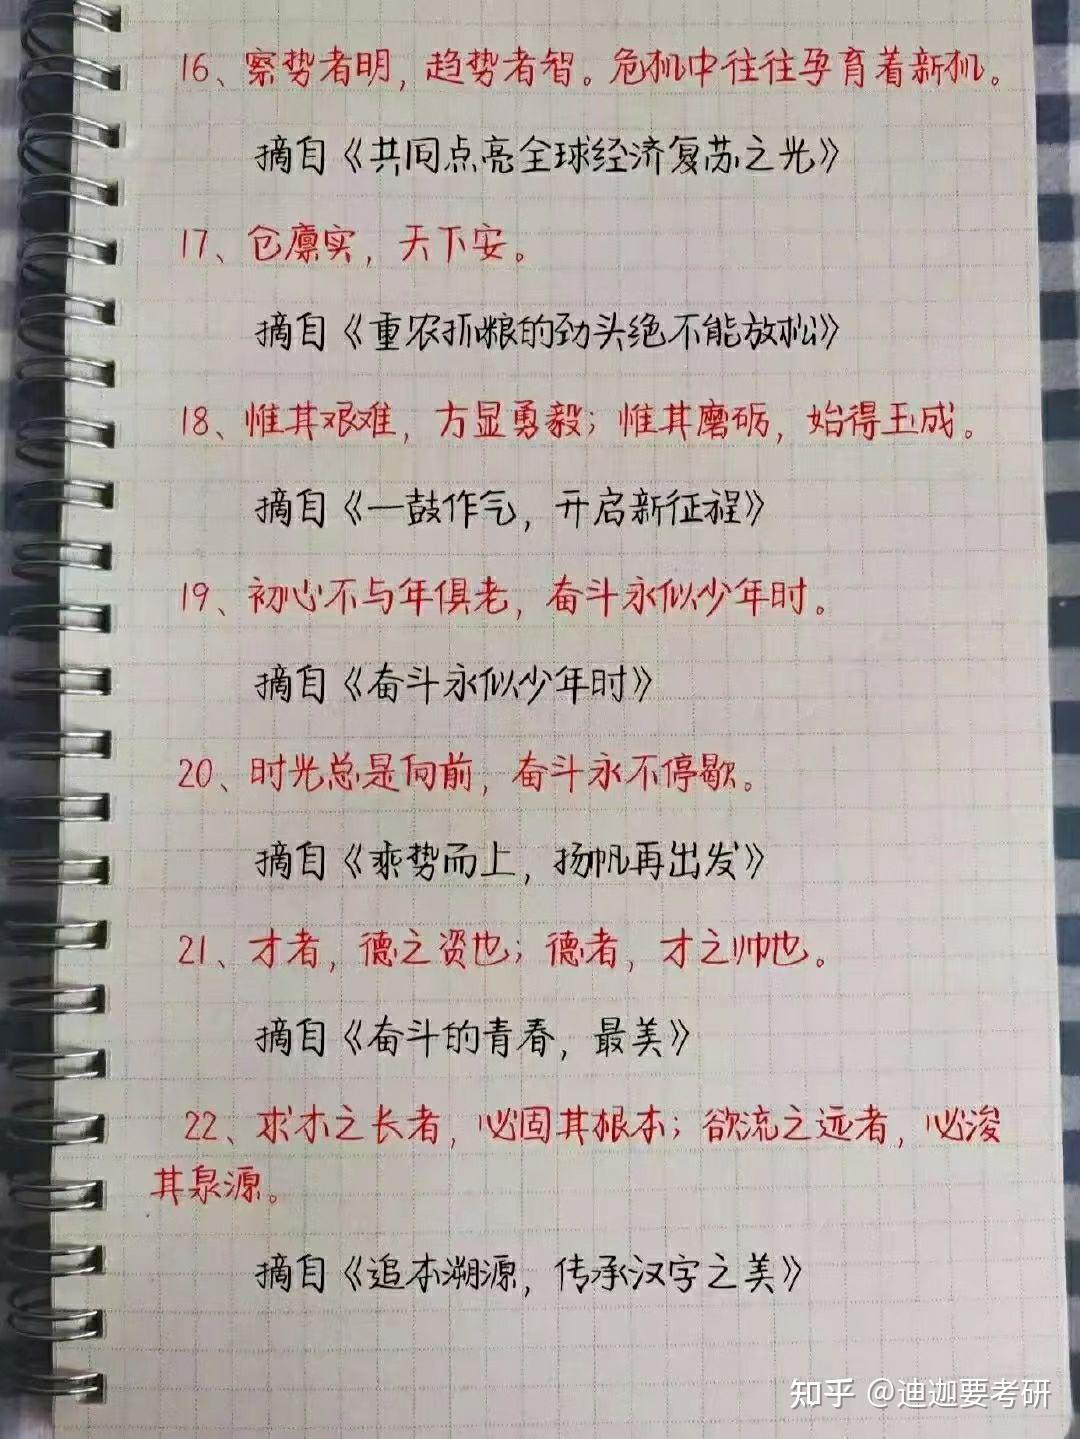 16、察势者明，趋势者智。危机中往往孕育着新机。
摘自《共同点亮全球经济复苏之光》
17、仓廪实，天下安。
摘自《重农抓粮的劲头绝不能放松》
18、惟其艰难，方显勇毅；惟其磨砺，始得玉成。
摘自《一鼓作气，开启新征程》
19、初心不与年俱老，奋斗永似少年时。
摘自《奋斗永似少年时》
20、时光总是向前，奋斗永不停歇。
摘自《乘势而上，扬帆再出发》
21、才者，德之资也；德者，才之帅也。
摘自《奋斗的青春，最美》
22、求木之长者，必固其根本；欲流之远者，必浚
其泉源。
摘自《追本溯源，传承汉字之美》
知乎 @迪迦要考研